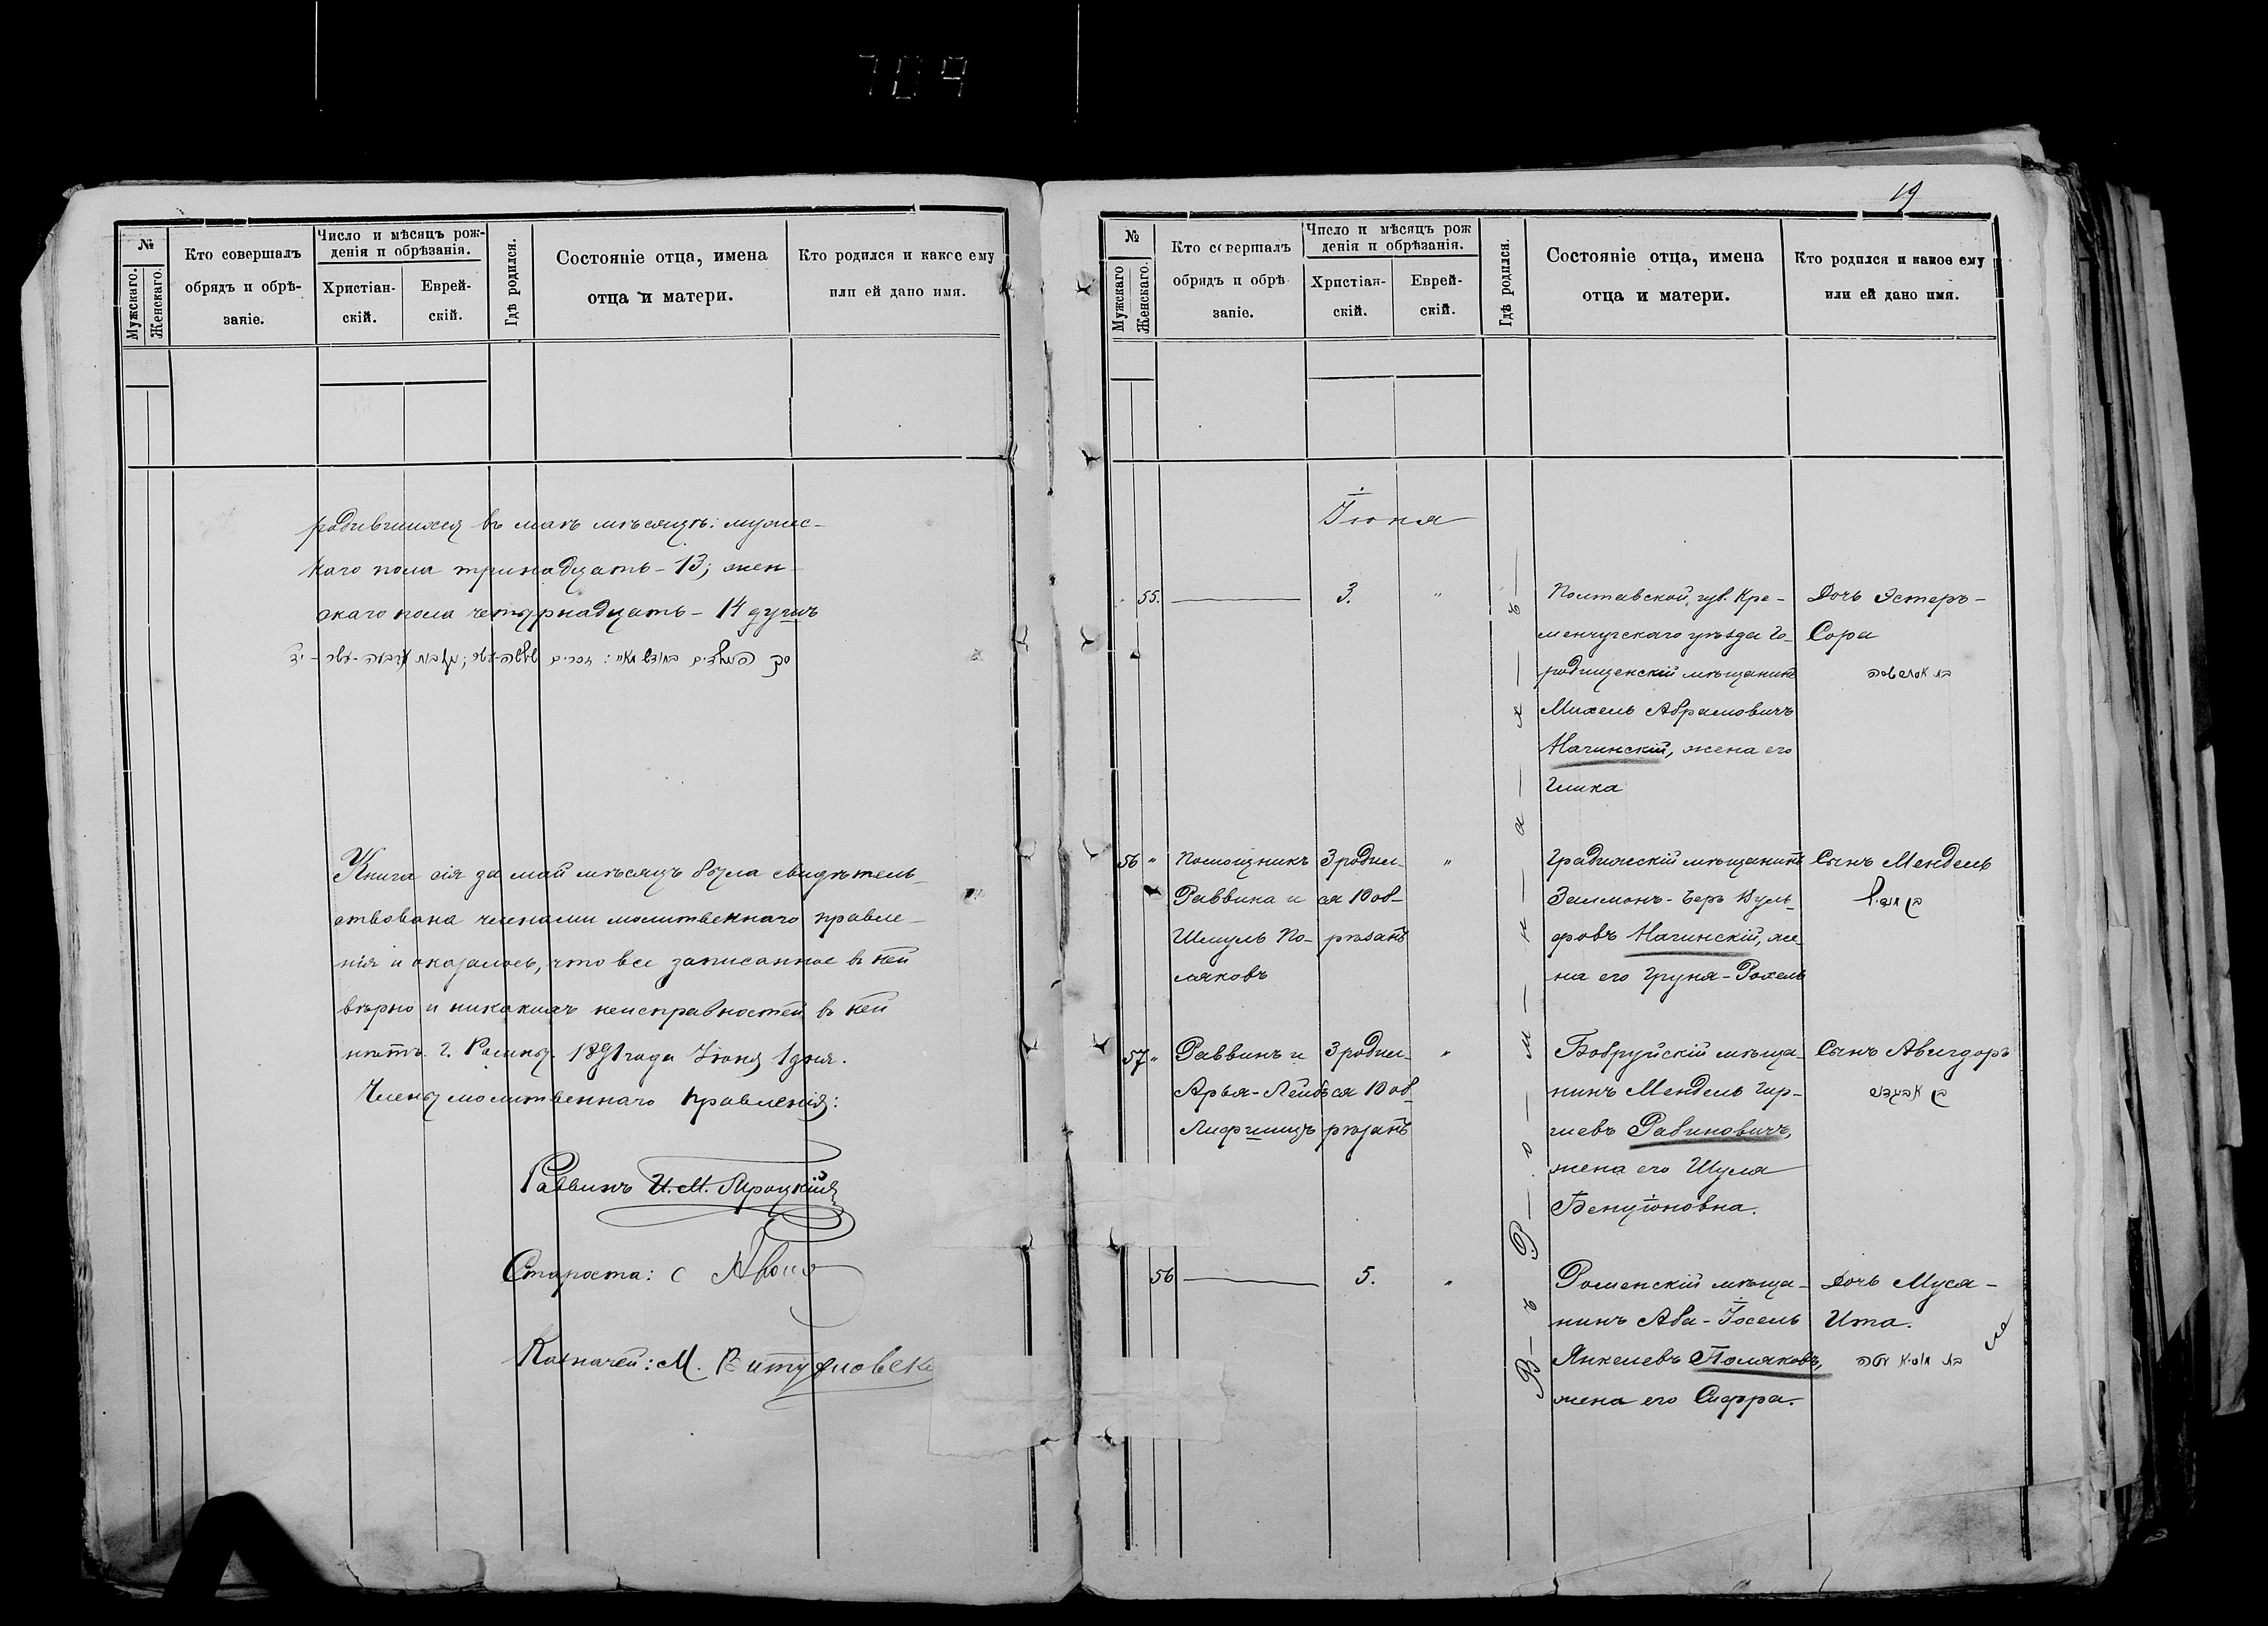 704
№
Мужскаго.
Женскаго.
Кто совершалъ
обрядъ и обрѣ-
заніе.
Число и мѣсяцъ рож-
денія и обрѣзанія.
Христіан-
скій.
Еврей-
скій.
Гдѣ родился.
Состояніе отца, имена
отца и матери.
Кто родился и какое ему
или ей дано имя.
родившихся въ маѣ мѣсяцѣ: мужес-
каго пола тринадцать - 13; жен-
скаго пола четырнадцать - 14 душъ
סך הנולדים בחודש מאיי: זכרים שלשה-עשר; נקבות ארבעה-עשר - יד
Книга сія за май мѣсяцъ была свидѣтель-
ствована членами молитвеннаго правле-
нія и оказалось, что все записанное въ ней
вѣрно и никакихъ неисправностей въ ней
нѣтъ. г. Ромны. 1891 года Іюня 1 дня.
Члены молитвеннаго правленія:
Раввинъ И. М.
Староста: С
Казначей: М.
19
№
Мужскаго
Женскаго.
Кто совершалъ
обрядъ и обрѣ
заніе.
Число и мѣсяцъ рож
денія и обрѣзанія.
Христіан-
скій.
Еврей-
скій.
Гдѣ родился.
Состояніе отца, имена
отца и матери.
Кто родился и какое ему
или ей дано имя.
Іюня
55. — 3. "
Полтавской, губ. Кре-
менчугскаго уѣзда Го-
родищенскій мѣщанинъ
Михель Абрамовичъ
Нагинскій, жена его
Гишка
Дочь Эстеръ-
Сора
בת אסתר שרה
56 "
Помощникъ
Раввина и
Шмуль По-
ляковъ
3 родил-
ся 10 об-
рѣзанъ
"
Градижскій мѣщанинъ
Залманъ-Беръ Вуль-
фовъ Нагинскій, же-
на его Груня-Рохель
Сынъ Мендель
בן מנדיל
57 "
Раввинъ и
Арья-Лейбъ
Лифшицъ
3 родил-
ся 10 об-
рѣзанъ
"
Бобруйскій мѣща-
нинъ Мендель Гир-
шевъ Рабиновичъ,
жена его Шуля
Бенціоновна.
Сынъ Авигдоръ
בן אביגדור
56 — 5. "
Роменскій мѣща-
нинъ Аба-Іосель
Янкелевъ Поляковъ,
жена его Сифра.
Дочь Муся-
Ита.
בת מוסיא איטה
Въ Ромнахъ